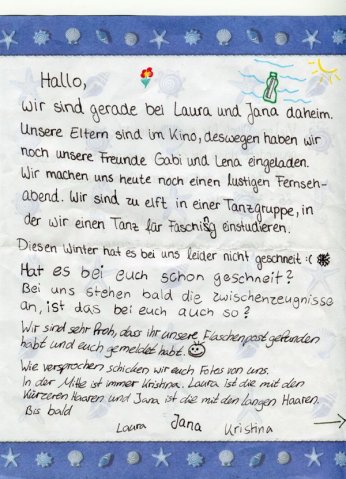 Hallo,
wir sind gerade bei Laura und Jana daheim.
Unsere Eltern sind im Kino, deswegen haben wir
noch unsere Freunde Gabi und Lena eingeladen.
Wir machen uns heute noch einen lustigen Fernseh-
abend. Wir sind zu elft in einer Tanzgruppe, in
der wir einen Tanz für Fasching einstudieren.
Diesen Winter hat es bei uns leider nicht geschneit :(
Hat es bei euch schon geschneit?
Bei uns stehen bald die Zwischenzeugnisse
an, ist das bei euch auch so?
Wir sind sehr froh, dass ihr unsere Flaschenpost gefunden
habt und euch gemeldet habt.
Wie versprochen schicken wir euch Fotos von uns.
In der Mitte ist immer Kristina. Laura ist die mit den
kürzeren Haaren und Jana ist die mit den langen Haaren.
Bis bald
Laura Jana Kristina